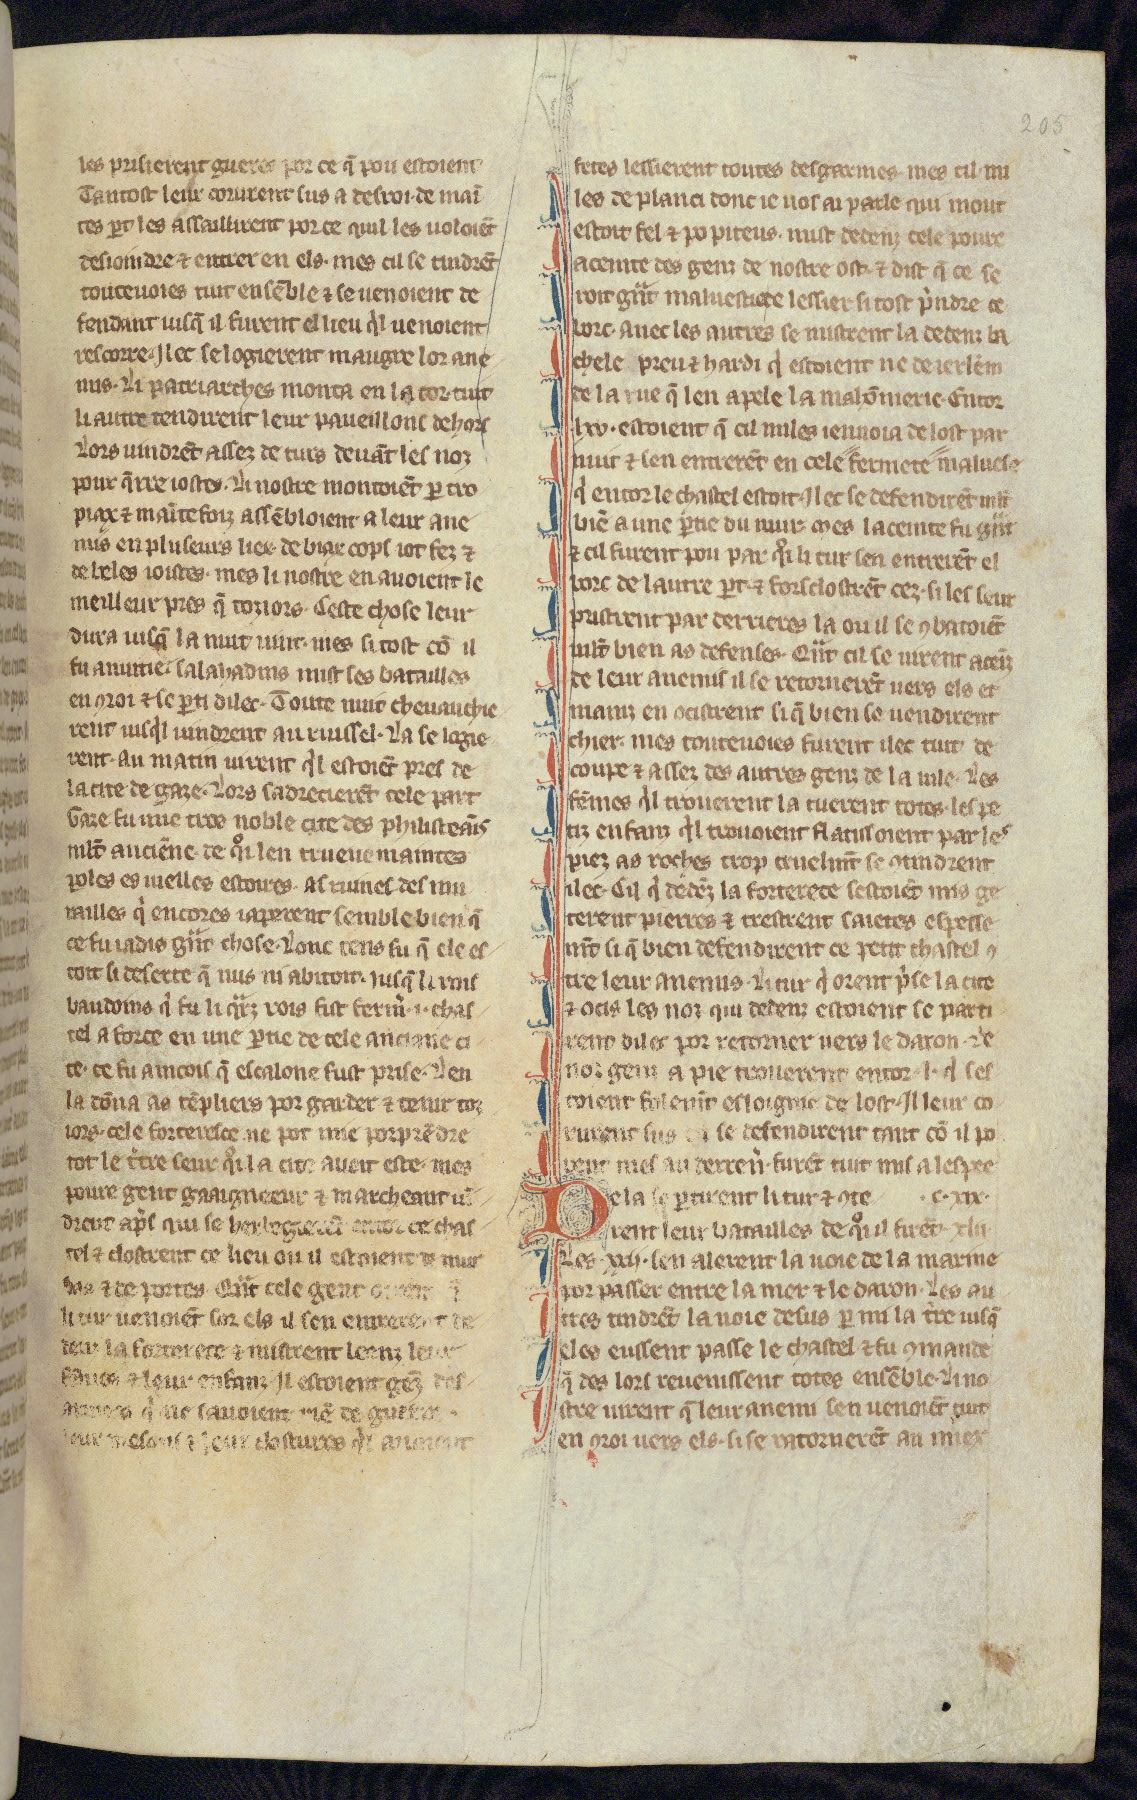 205
les prisierent gueres por ce q̄ pou estoient
Tantost leur corurent sus a desroi. de maī
tes p̄t les assaillirent por ce quil les uoloiēt
desioindre ⁊ entrer en els. mes cil se tindrēt
touteuoies tuit ensēble ⁊ se uenoient de
fendant iusq̄ il furent el lieu q̓l uenoient
rescorre. Ilec se logierent maugre lor ane
mis. Li patriarches monta en la tor. tuit
li autre tendirent leur paueillons dehors
Lors uindrēt assez de turs deuāt les noz
pour q̄rre iostes. Li nostre montoiēt p tro
piax ⁊ maīte foiz assēbloient a leur ane
mis en pluseurs liex. de biax cops iot fez ⁊
de beles ioistes. mes li nostre en auoient le
meilleur pres q̄ toziors. Ceste chose leur
dura iusq̄ la nuit uint. mes si tost cō il
fu anuitie. salahadins mist ses batailles
en ꝯroi ⁊ se p̄ti dilec. Toute nuit cheuauchie
rent iusq̓l uindrent au ruissel. La se logie
rent. Au matin uirent q̓l estoiēt pres de
la cite de gaze. Lors sadrecierēt cele part
Gaze fu une trop noble cite des philisteās
mlt̄ anciēne. de q̊i len trueue maintes
poles es uielles estoires. As ruines des mu
railles q̓ encores iaperent semble bien q̄
ce fu iadis gr̄t chose. Lonc tens fu q̄ ele es
toit si deserte q̄ nus ni abitoit. Iusq̄ li rois
baudoins q̓ fu li q̄rz rois fist ferm̄. i. chas
tel a force en une p̄tie de cele anciane ci
te. ce fu aincois q̄ escalone fust prise. Len
la dōna as tēpliers por garder ⁊ tenir toz
iors. cele forteresce ne pot mie porprēdre
tot le t̄tre seur q̊i la cite auoit este. mes
poure gent gaaigneeur ⁊ marcheant ui
drent ap̄s qui se herbegierēt entor ce chas
tel ⁊ clostrent ce lieu ou il estoient de mur
bas ⁊ de portes. Qn̄t cele gent oirent q̄
li tur uenoiēt sor els il sen entrerent de
denz la forterece ⁊ mistrent leenz leur
fames ⁊ leur enfanz. Il estoient gēz des
armees q̓ ne sauoient riē de guerre.
leur mesons ⁊ leur clostures q̓l auoient
fetes lessierent toutes desgarnies. mes cil mi
les de planci dont ie uos ai parle qui mout
estoit fel ⁊ po piteus. mist dedenz cele poure
aceinte des genz de nostre ost. ⁊ dist q̄ ce se
roit gr̄t mauuestie de lessier si tost p̄ndre ce
borc. auec les autres se mistrent la dedenz ba
chele preu ⁊ hardi q̓ estoient ne de ierlēm
de la rue q̄ len apele la mahōmerie. Entor
lxv. estoient q̄ cil miles ienuoia de lost par
nuit ⁊ sen entrerēt en cele fermete mauuese
q̓ entor le chastel estoit. Ilec se defendirēt mlt̄
biē a une p̄tie du mur. mes laceinte fu gr̄t
⁊ cil furent pou par q̊i li tur sen entrerēt el
borc de lautre p̄t. ⁊ forsclostrēt cez. si les seur
pristrent par derrieres la ou il se ꝯbatoiēt
mlt̄ bien as defenses. Qn̄t cil se uirent aceiz
de leur anemis il se retornerēt uers els et
mainz en ocistrent si q̄ bien se uendirent
chier. mes touteuoies furent ilec tuit de
coupe ⁊ assez des autres genz de la uile. Les
fēmes q̓l trouerent la tuerent totes. les pe
tiz enfanz q̓l trouoient flatissoient par les
piez as roches trop cruelmt̄ se ꝯtindrent
ilec. Cil q̓ dedēz la forterece sestoiēt mis ge
terent pierres ⁊ trestrent saietes espesse
mt̄ si q̄ bien defendirent ce petit chastel ꝯ
tre leur anemis. Li tur q̓ orent p̄se la cite
⁊ ocis les noz qui dedenz estoient se parti
rent dilec por retorner uers le daron. De
noz genz a pie trouerent entor. l. q̓ ses
toient folemt̄ esloignie de lost. Il leur co
rurent sus cil se defendirent tant cō il po
rent mes au derreń. furēt tuit mis a lespee
De la se p̄tirent li tur ⁊ ꝯte . c. xix.
rent leur batailles de q̊i il firēt. xlii.
Les. xxii. sen alerent la uoie de la marine
por passer entre la mer ⁊ le daron. Les au
tres tindrēt la uoie desus p mi la t̄re iusq̄
eles eussent passe le chastel ⁊ fu ꝯmande
q̄ des lors reuenissent totes ensēble. Li no
stre uirent q̄ leur anemi sen uenoiēt tuit
en ꝯroi uers els. si se ratornerēt au miex